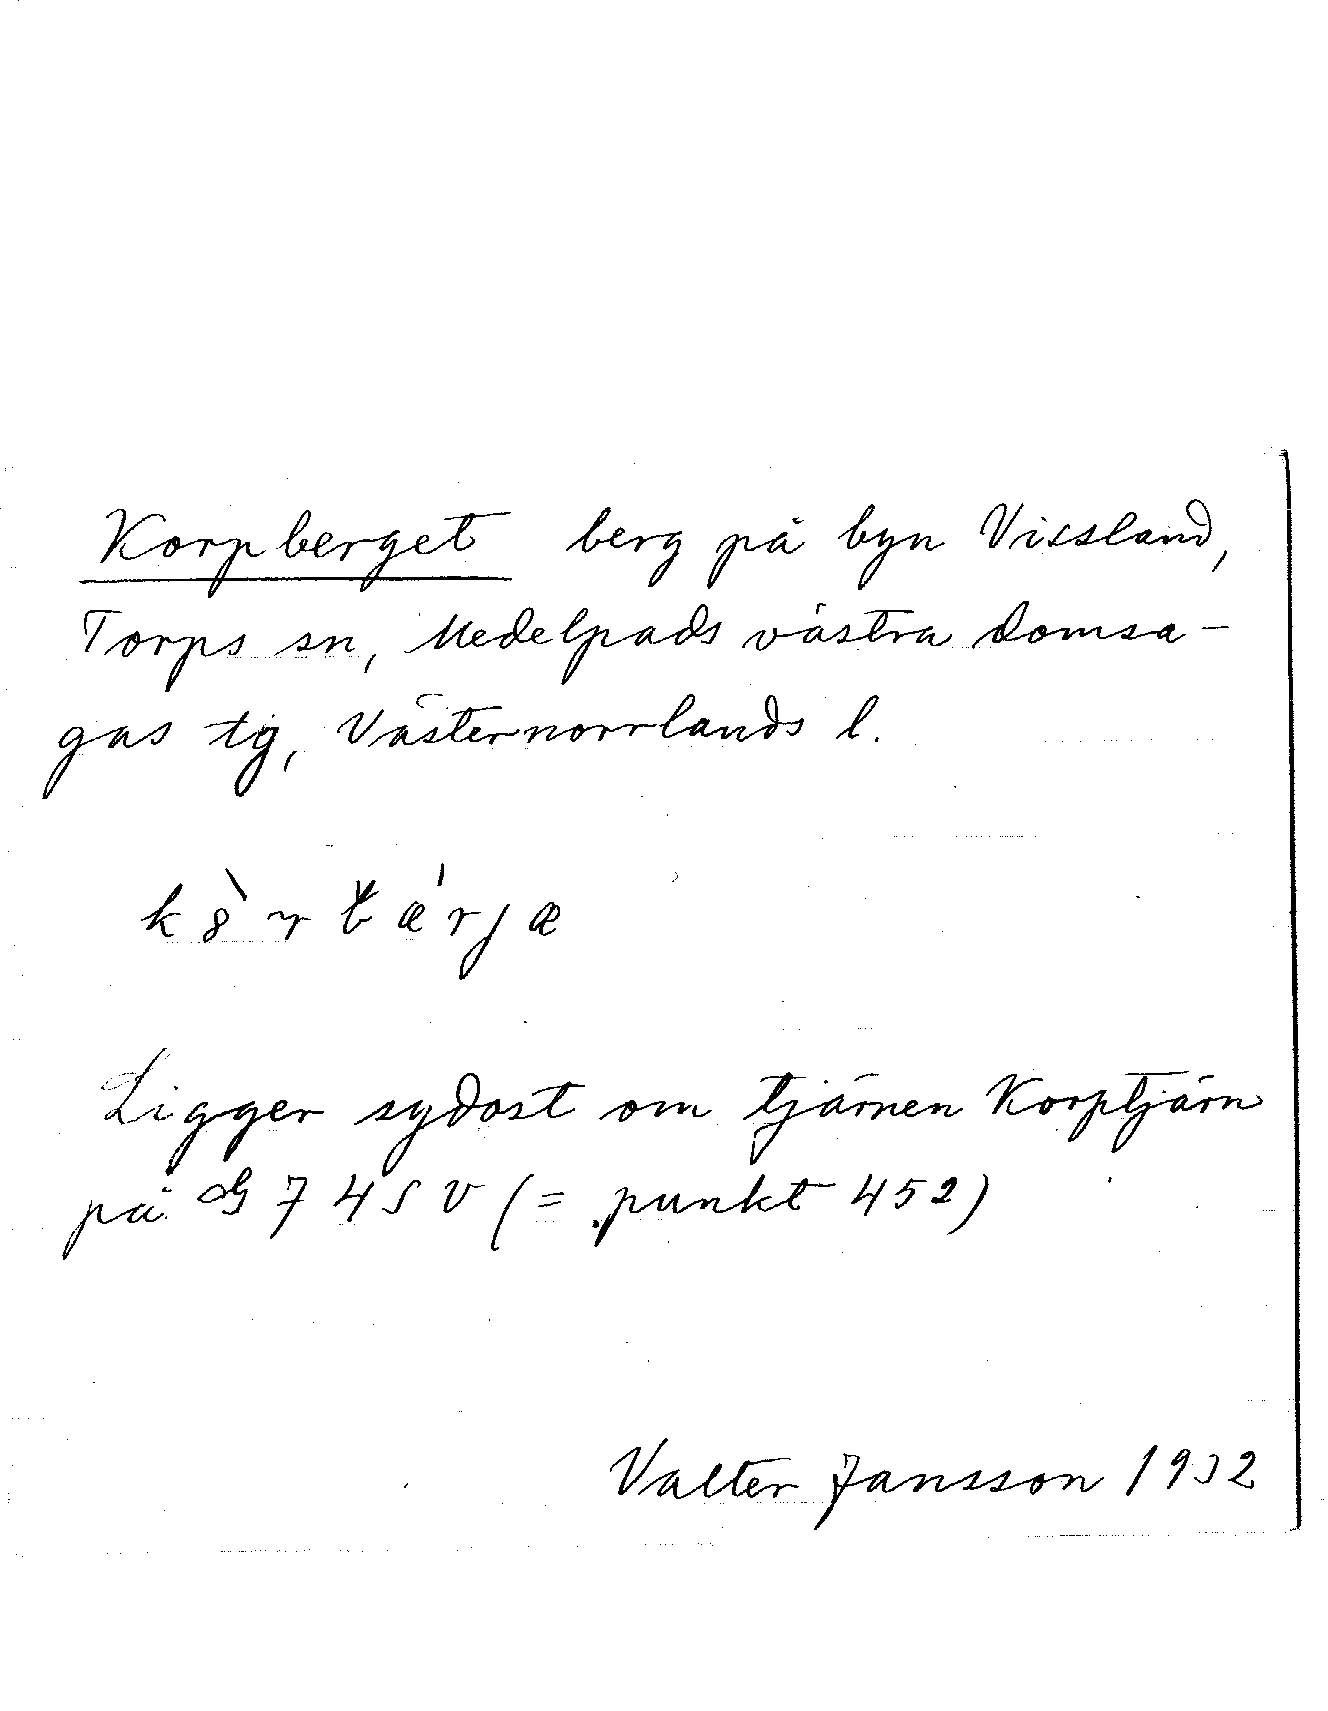 Korpberget berg på byn Vissland,
Torps sn, Medelpads västra domsa-
gas tg, Västernorrlands l.
Ligger sydost om tjärnen Korptjärn
på G 74 SV (= punkt 452)
Valter Jansson 1932